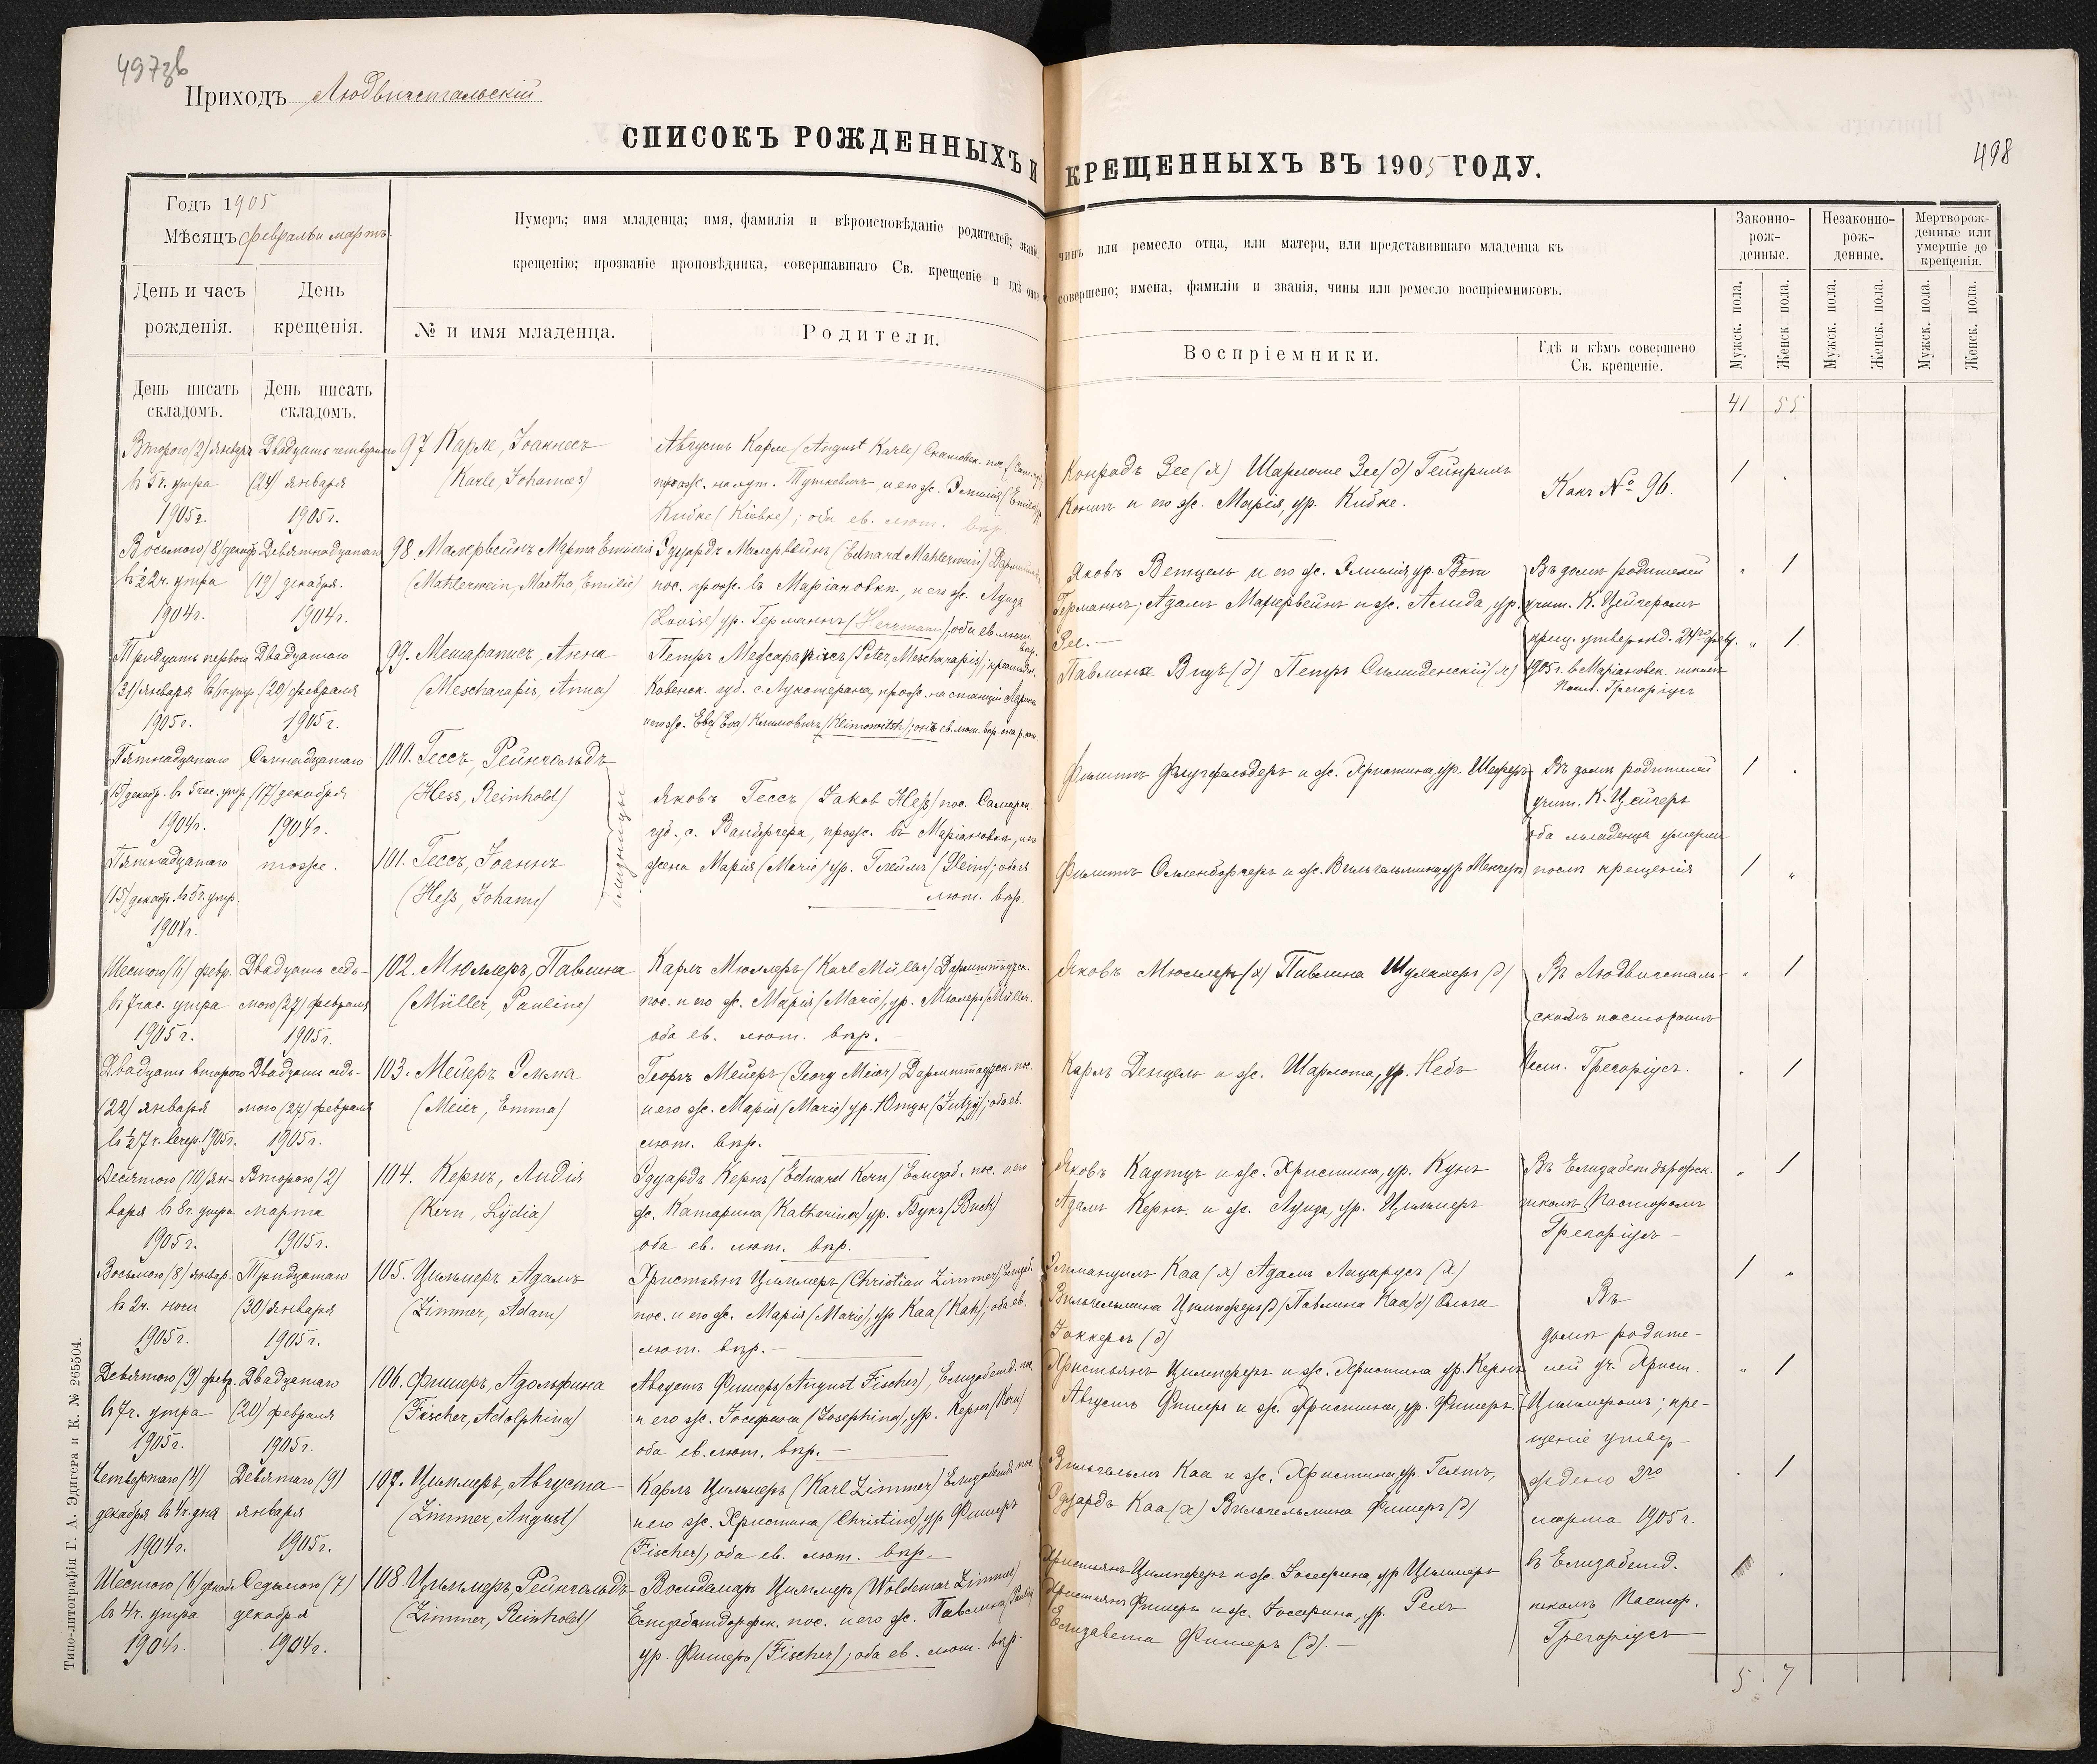 497зв
Приходъ Людвигстальскій
СПИСОКЪ РОЖДЕННЫХЪ И КРЕЩЕННЫХЪ ВЪ 1905 ГОДУ.
498
Годъ 1905
Мѣсяцъ февраль и мартъ.
Нумеръ; имя младенца; имя, фамилія и вѣроисповѣданіе родителей; званіе, чинъ или ремесло отца, или матери, или представившаго младенца къ
крещенію; прозваніе проповѣдника, совершавшаго Св. крещеніе и гдѣ оное совершено; имена, фамиліи и званія, чины или ремесло воспріемниковъ.
Законно-
рож-
денные.
Незаконно-
рож-
денные.
Мертворож-
денные или
умершіе до
крещенія.
День и часъ
рожденія.
День
крещенія.
№ и имя младенца.
Родители.
Воспріемники.
Гдѣ и кѣмъ совершено
Св. крещеніе.
Мужск. пола.
Женск. пола.
Мужск. пола.
Женск. пола.
Мужск. пола.
Женск. пола.
День писать
складомъ.
День писать
складомъ.
41 55
Второго (2) января
въ 5 ч. утра
1905 г.
Двадцать четвертаго
(24) января
1905 г.
97 Карле, Іоаннесъ
(Karle, Johannes)
Августъ Карле (August Karle)
Кибке (Kiebke); оба ев. лют. вѣр.
Конрадъ Зее (х) Шарлоте Зее (д) Гейнрихъ
и его ж. Марія, ур. Кибке.
Какъ № 96.
1
Восьмого (8) декабр.
въ 2 ч. утра
1904 г.
Девятнадцатаго
(19) декабря.
1904 г.
98. Малервейнъ Марта Емилія
(Mahlerwein, Martha, Emilie)
Эдуардъ Малервейнъ (Eduard Mahlerwein)
пос. прож. въ Маріановкѣ, и его ж. Луиза
(Louise) ур. Германнъ (Herrmann); оба ев. лют. вѣр.
Яковъ Ветцель и его ж. Эмилія, ур.
Германнъ; Адамъ Малервейнъ и ж. Алида, ур.
Зее.-
Въ домѣ родителей
учит. К. Цейчеромъ
крещ. утвержд. 24го февр.
1905 г. въ Маріановск. школѣ
Паст. Грегоріусъ
1
Тридцать перваго
(31) января
1905 г.
Двадцатаго
(20) февраля
1905 г.
99. Мешараписъ, Анна
(Mescharapis, Anna)
Петръ Мешараписъ (Peter Mescharapis);
Ковенск. губ.
и его ж. Ева (Eva) Климовичъ (Klimowitsh);
Павлина (д) Петръ (х)
1.
Пятнадцатаго
(15) декабр. въ 5 час. утр.
1904 г.
Семнадцатаго
(17) декабря
1904 г.
100. Гессъ, Рейнгольдъ
(Hess, Reinhold)
близнецы
Яковъ Гессъ (Jakob Heß) пос. Самарск.
губ., с. прож. въ Маріановкѣ, его
жена Марія (Marie) ур. Глеймъ (Gleim); оба ев.
лют. вѣр.
Филиппъ Флугфельдеръ и ж. Христина, ур. Шеферъ
Въ домѣ родителей
учит. К. Цейчеръ
оба младенца умерли
послѣ крещенія
1
Пятнадцатаго
(15) декабр. въ 5 ч. утр.
1904 г.
тоже.
101. Гессъ, Іоаннъ
(Heß, Johann)
Филиппъ и ж. Вильгельмина, ур.
1
Шестого (6) февр.
въ 7 час. утра
1905 г.
Двадцать седь-
мого (27) февраля
1905 г.
102. Мюллеръ, Павлина
(Müller, Pauline)
Карлъ Мюллеръ (Karl Müller) Дармштадск.
пос. и его ж. Марія (Marie), ур. Мюллеръ (Müller.
оба ев. лют. вѣр.-
Яковъ Мюллеръ (х) Павлина Шумахеръ (д)
Въ Людвигсталь-
скомъ пасторатѣ
Паст. Грегоріусъ.
1
Двадцать второго
(22) января
1905 г.
Двадцать седь-
мого (27) февраля
1905 г.
103. Мейеръ Эмма
(Meier, Emma)
Георгъ Мейеръ (Georg Meier) Дармштадск. пос.
и его ж. Марія (Marie) ур. Ютцы (Jutzy); оба ев.
лют. вѣр.
Карлъ Денцель и ж. Шарлота, ур. Небъ
1
Десятого (10) ян-
варя въ 8 ч. утра
1905 г.
Второго (2)
марта
1905 г.
104. Кернъ, Лидія
(Kern, Lydia)
Эдуардъ Кернъ (Eduard Kern) Елизаб. пос. и его
ж. Катарина (Katharina) ур. Букъ (Buck)
оба ев. лют. вѣр.
Яковъ Каутцъ и ж. Христина, ур. Кунъ
Адамъ Кернъ. и ж. Луиза, ур. Циммеръ
Въ Елизабетдорфск.
школѣ Пасторомъ
Грегоріусъ-
1
Восьмого (8) январ.
въ 2 ч. ночи
1905 г.
Тридцатаго
(30) января
1905 г.
105. Циммеръ, Адамъ
(Zimmer, Adam)
Христьянъ Циммеръ (Christian Zimmer) Елизаб.
пос. и его ж. Марія (Marie), ур Каа (Kah); оба ев.
лют. вѣр.-
Эммануилъ Каа (х) Адамъ Лацарусъ (х)
Вильгельмина (д) Павлина Каа (д) Ольга
(д)
Въ
домѣ родите-
лей уч. Христ.
Циммеромъ; кре-
щеніе утвер-
ждено 2го
марта 1905 г.
въ Елизабетд.
школѣ Пастор.
Грегоріусъ
1
Девятого (9) февр.
въ 7 ч. утра
1905 г.
Двадцатаго
(20) февраля
1905 г.
106. Фишеръ, Адольфина
(Fischer, Adolphina)
Августъ Фишеръ (August Fischer), Елизабетд. пос.
и его ж. Іосефина (Josephina), ур. Кернъ (Kern)
оба ев. лют. вѣр.-
Христьянъ и ж. Христина ур. Кернъ
Августъ Фишеръ и ж. Христина, ур. Фишеръ.
1
Четвертаго (4)
декабря въ 4 ч. дня
1904 г.
Девятаго (9)
января
1905 г.
107. Циммеръ, Августа
(Zimmer, August)
Карлъ Циммеръ (Karl Zimmer) Елизабетд. пос.
и его ж. Христина (Christine) ур Фишеръ
(Fischer); оба ев. лют. вѣр.-
Вильгельмъ Каа и ж. Христина, ур.
Эдуардъ Каа (х) Вильгельмина Фишеръ (д)
1
Шестого (6) декаб.
въ 4 ч. утра
1904 г.
Седьмого (7)
декабря
1904 г.
108. Циммеръ, Рейнгольдъ
(Zimmer, Reinhold)
Вольдемаръ Циммеръ (Woldemar Zimmer)
Елизабетдорфск. пос. и его ж. Павлина
ур. Фишеръ (Fischer); оба ев. лют. вѣр.
Христьянъ и ж. Іосефина, ур Циммеръ
Христьянъ Фишеръ и ж. Іосефина, ур.
Елизавета Фишеръ (д).-
1
5 7
Типо-литографія Г. А. Эдигера и К. № 265504.